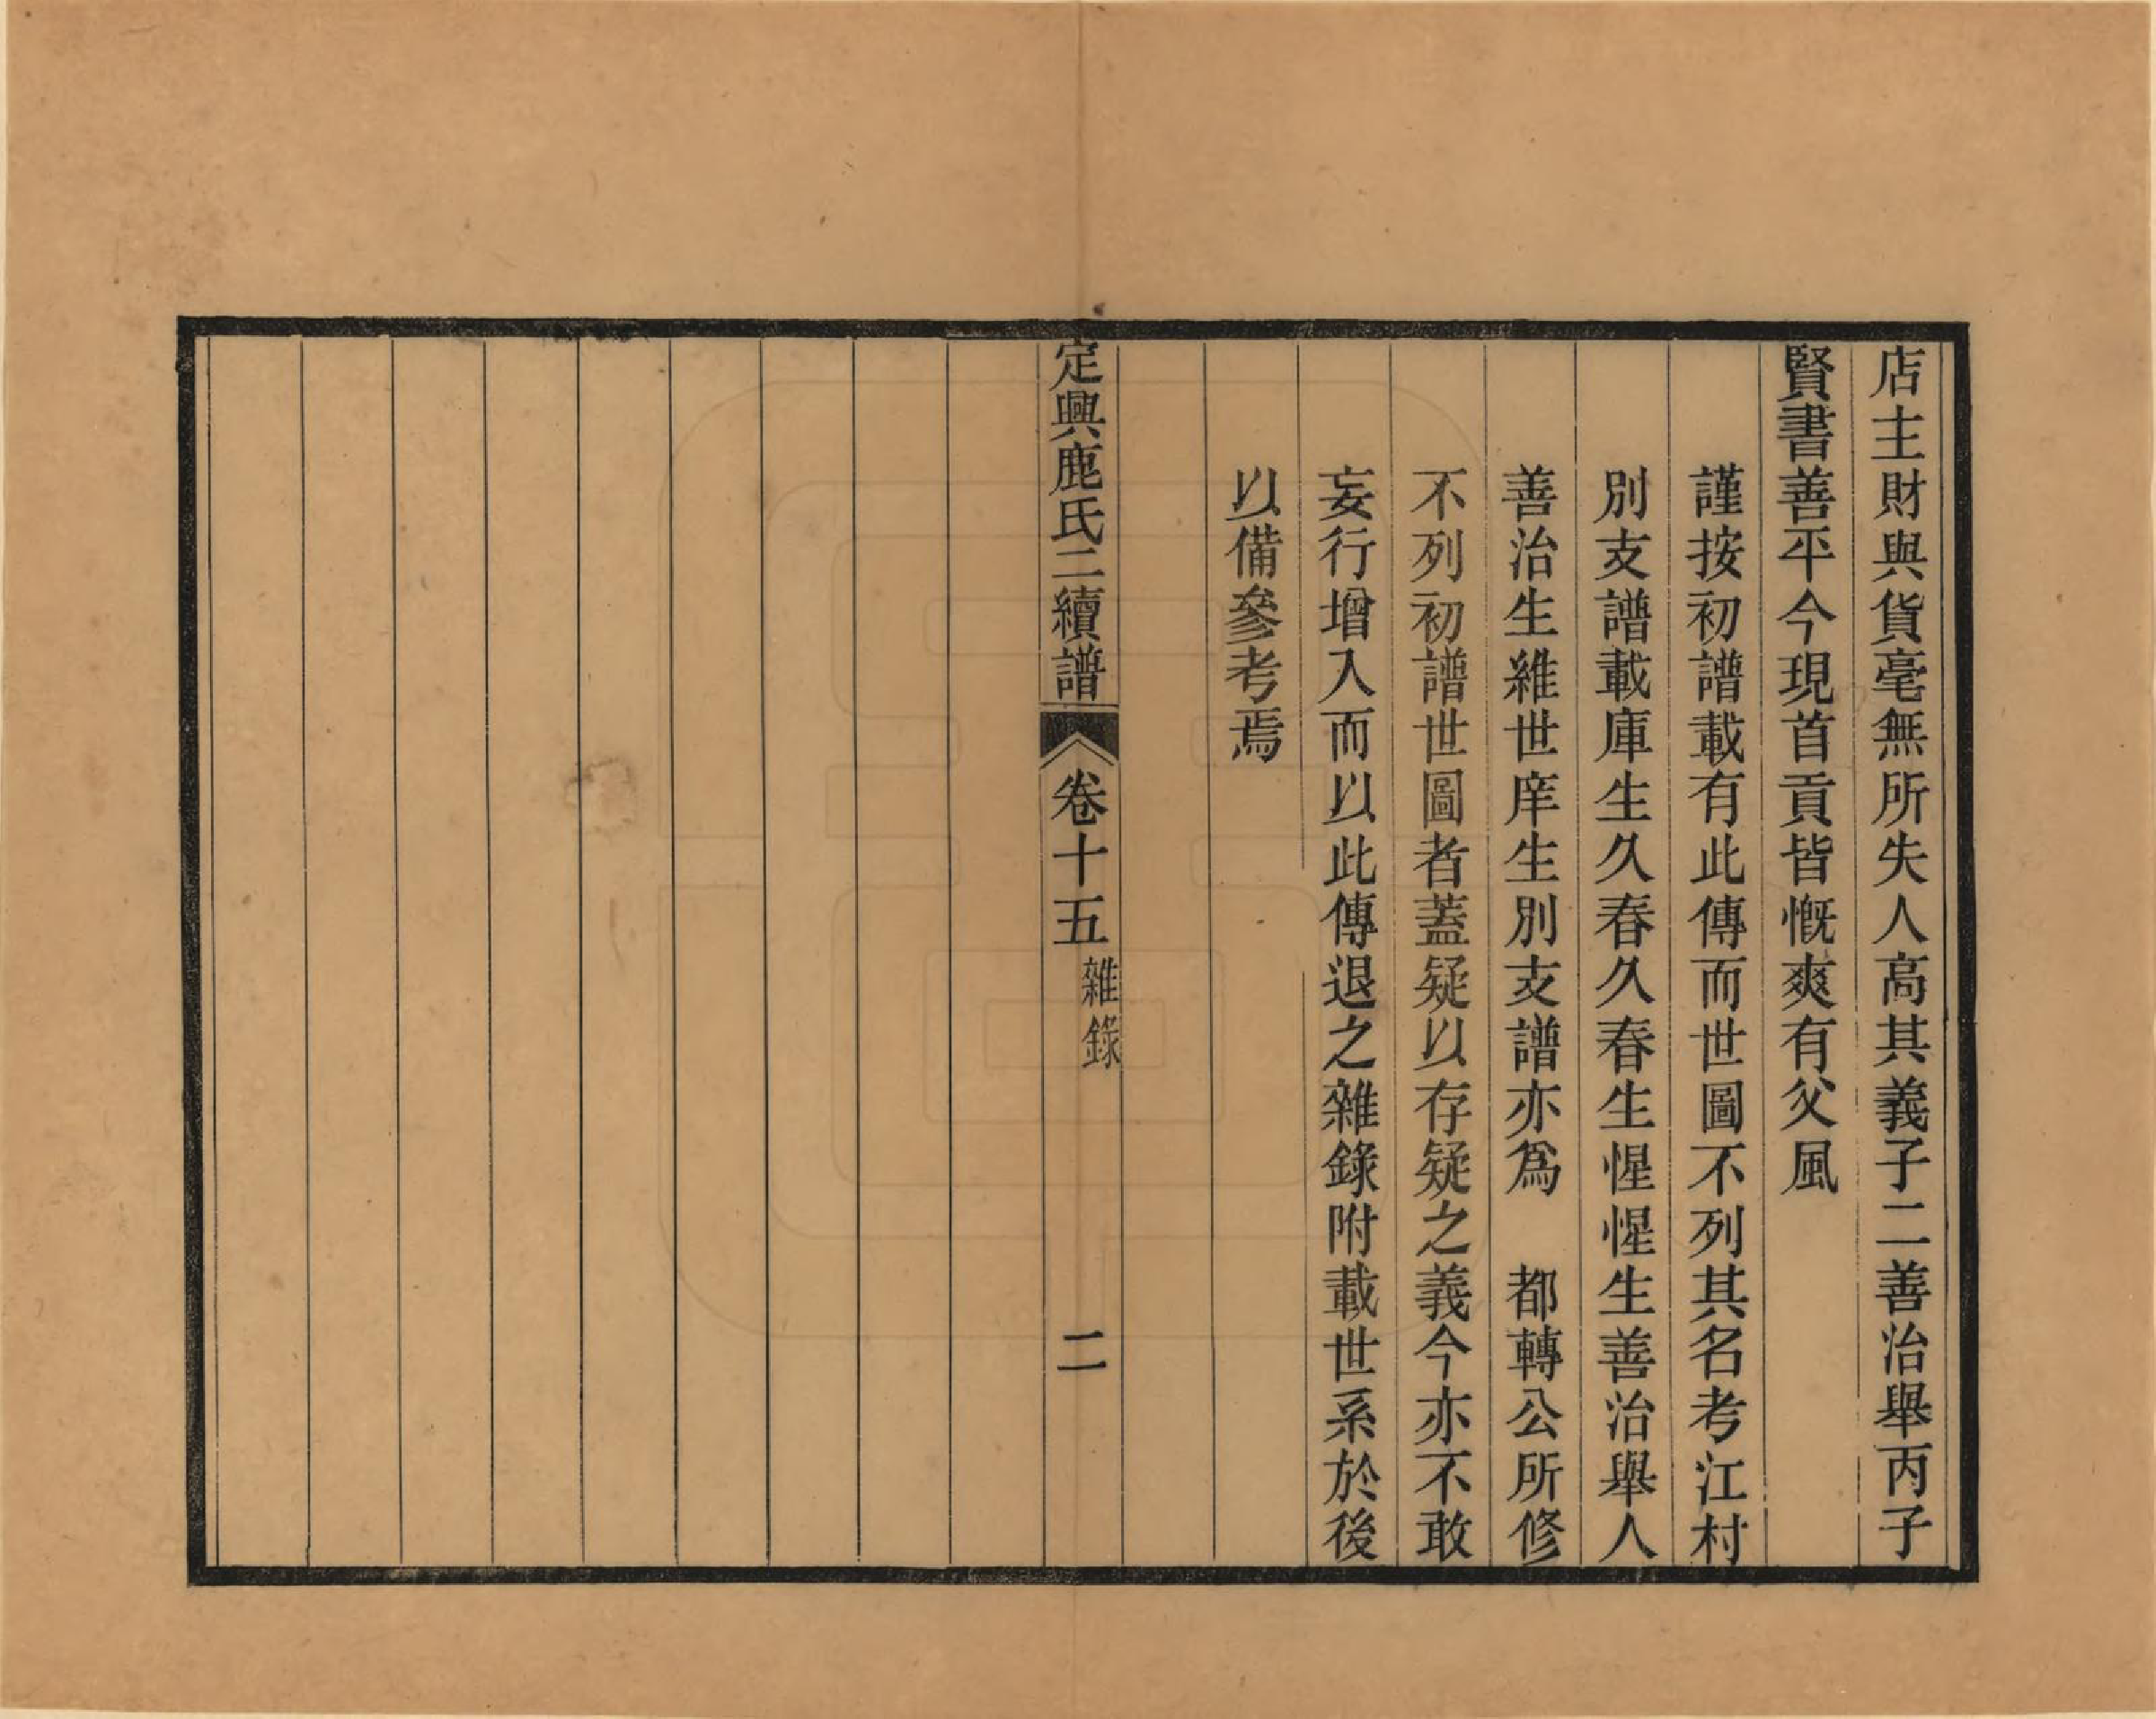 店主財與貨毫無所失人高其義子二善治舉丙子
賢書善平今現首貢皆慨爽有父風
謹按初譜載有此傳而世圖不列其名考江村
別支譜載庫生久春久春生惺惺生善治舉人
善治生維世庠生別支譜亦爲　都轉公所修
不列初譜世圖者蓋疑以存疑之義今亦不敢
妄行增入而以此傳退之雜錄附載世系於後
以備參考焉
定興鹿氏二續譜
卷十五
雜錄
二